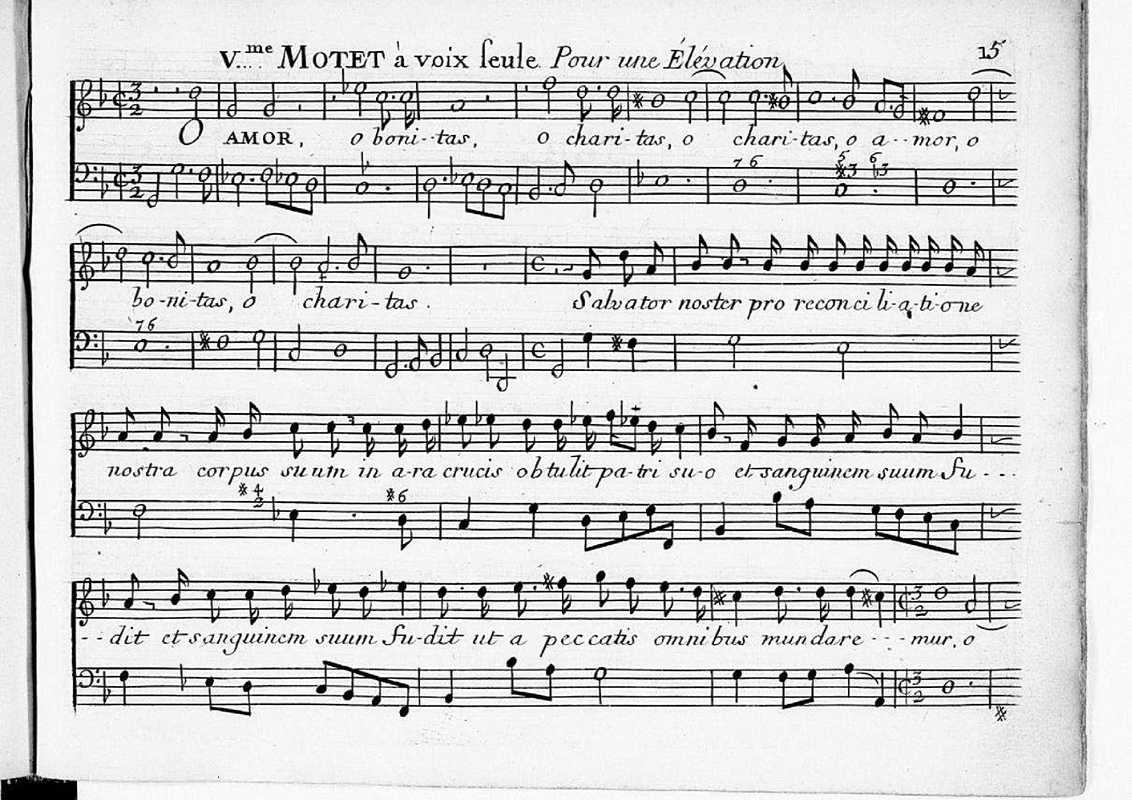 V.me MOTET à voix seule. Pour une Élévation 15
O AMOR, o boni--tas, o chari-tas, o chari-tas, o a--mor, o
bo-ni-tas, o chari-tas. Salvator noster pro reconci li-a-ti-one
nostra corpus suum in a-ra crucis obtulit pa-tri su-o et sanguinem suum fu---
--dit et sanguinem suum fu-dit ut a peccatis omnibus mundare---mur, o